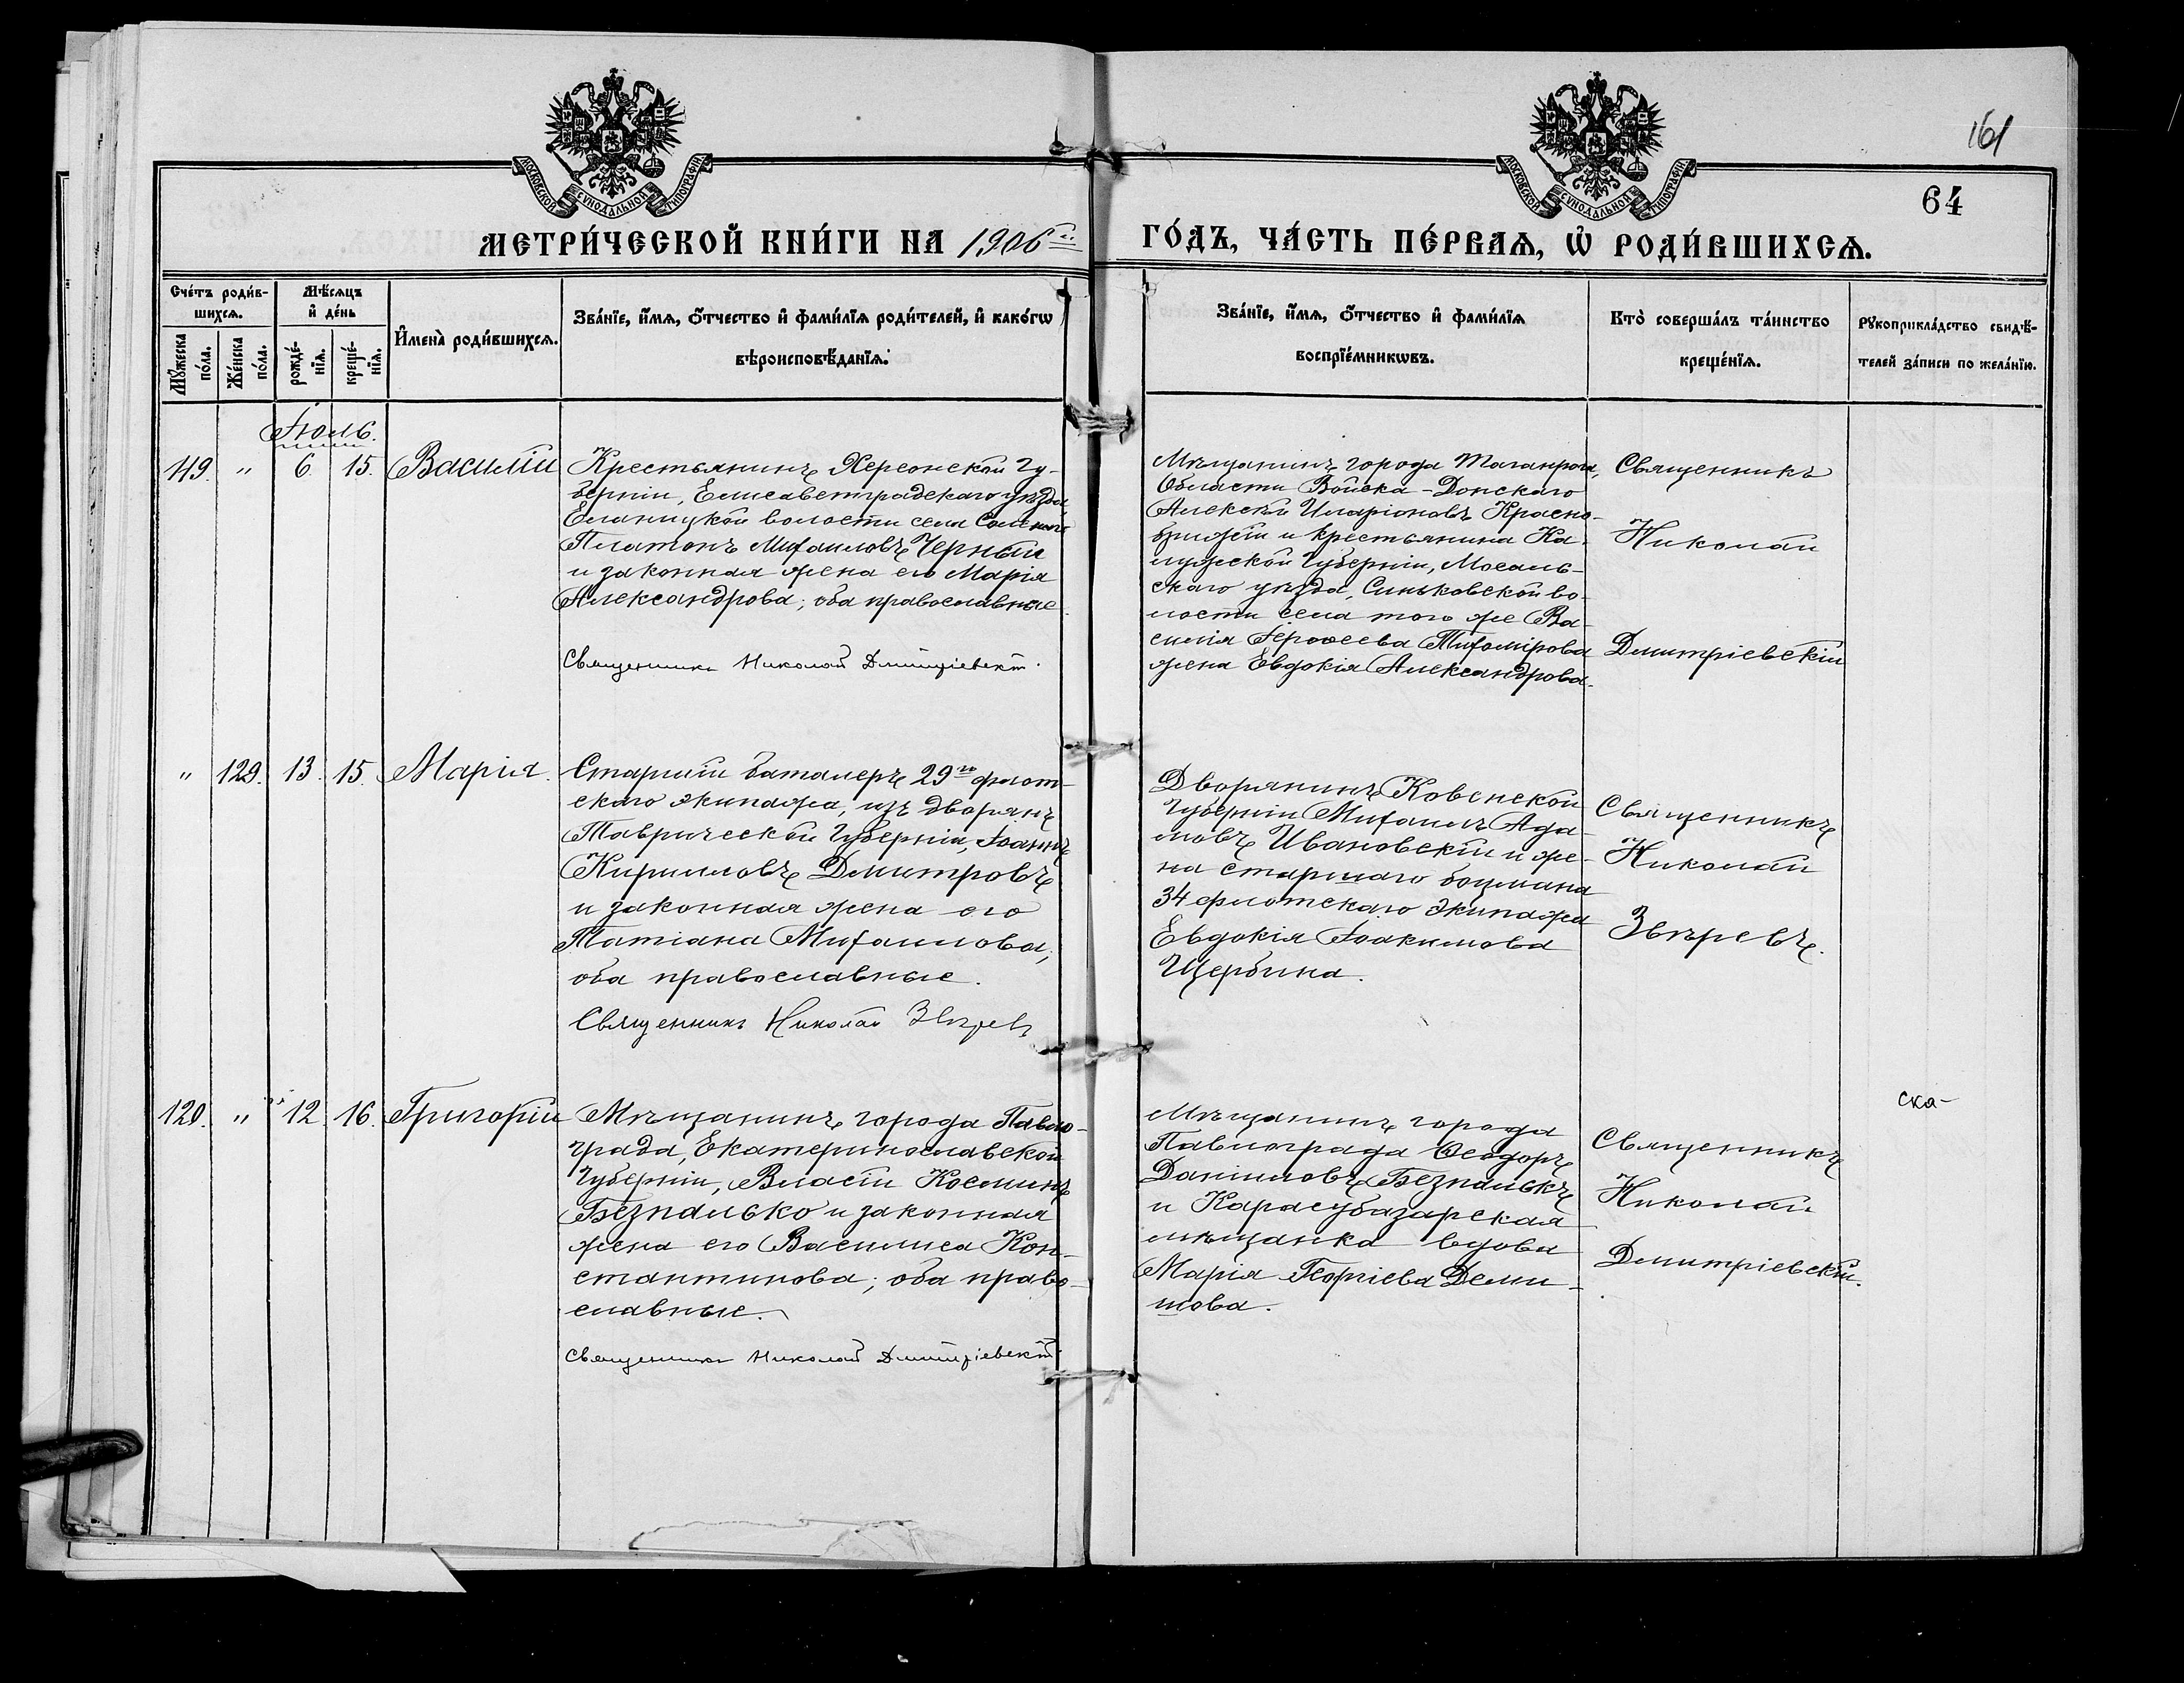 161
64
МОСКОВСКОЙ СѴНОДАЛЬНОЙ ТИПОГРАФІИ
МОСКОВСКОЙ СѴНОДАЛЬНОЙ ТИПОГРАФІИ
МЕТРИ́ЧЕСКОЙ КНИ́ГИ НА 1906й
ГО́ДЪ, ЧА́СТЬ ПЕ́РВАѦ, Ѡ҆ РОДИ́ВШИХСѦ.
Сче́тъ роди́в-
шихсѧ.
Мꙋ́жеска
по́ла.
Же́нска
по́ла.
Мѣ́сяцъ
и҆ де́нь
рожде́-
нїѧ.
креще́-
нїѧ.
И҆мена̀ роди́вшихсѧ.
Зва́нїе, и҆́мѧ, ѻ҆́тчество и҆ фами́лїѧ роди́телей, и҆ како́гѡ
вѣроисповѣ́данїѧ.
Зва́нїе, и҆́мѧ, ѻ҆́тчество и҆ фами́лїѧ
воспрїе́мникѡвъ.
Кто̀ соверша́лъ та́инство
креще́нїѧ.
Рꙋкоприкла́дство свидѣ́-
телей за́писи по жела́нїю.
Іюль.
119. " 6. 15. Василій
Крестьянинъ Херсонской Гу-
берніи, Елисаветградскаго уѣзда,
Еланецкой волости села
Платонъ Михаиловъ Черный
и законная жена его Марія
Александрова; оба православные.
Священникъ Николай Дмитріевскій.
Мѣщанинъ города Таганрога,
Области Войска-Донскаго
Алексѣй Иларіоновъ Красно-
и крестьянина Ка-
лужской Губерніи, Мосаль-
скаго уѣзда, Синьковской во-
лости села того же Ва-
силія Іероѳеева Тихомірова
жена Евдокія Александрова.
Священникъ
Николай
Дмитріевскій
" 129. 13. 15. Марія.
Старшій баталеръ 29го флот-
скаго экипажа, изъ дворянъ
Таврической Губерніи, Іоаннъ
Кирилловъ Дмитровъ
и законная жена его
Татіана Михаилова,
оба православные.
Священникъ Николай Звѣревъ
Дворянинъ Ковенской
Губерніи Михаилъ Ада-
мовъ Ивановскій и же-
на старшаго боцмана
34 флотскаго экипажа
Евдокія Іоакимова
Щербина.
Священникъ
Николай
Звѣревъ.
120. " 12. 16. Григорій
Мѣщанинъ города Павло-
града, Екатеринославской
Губерніи, Власій Косминъ
Безпалько и законная
жена его Василиса Кон-
стантинова; оба право-
славные.
Священникъ Николай Дмитріевскій
Мѣщанинъ города
Павлограда Ѳеодоръ
Даніиловъ Безпалькъ
и Карасубазарская
мѣщанка вдова
Марія Георгіева Деми-
шова.
Священникъ
Николай
Дмитріевскій.
ска-